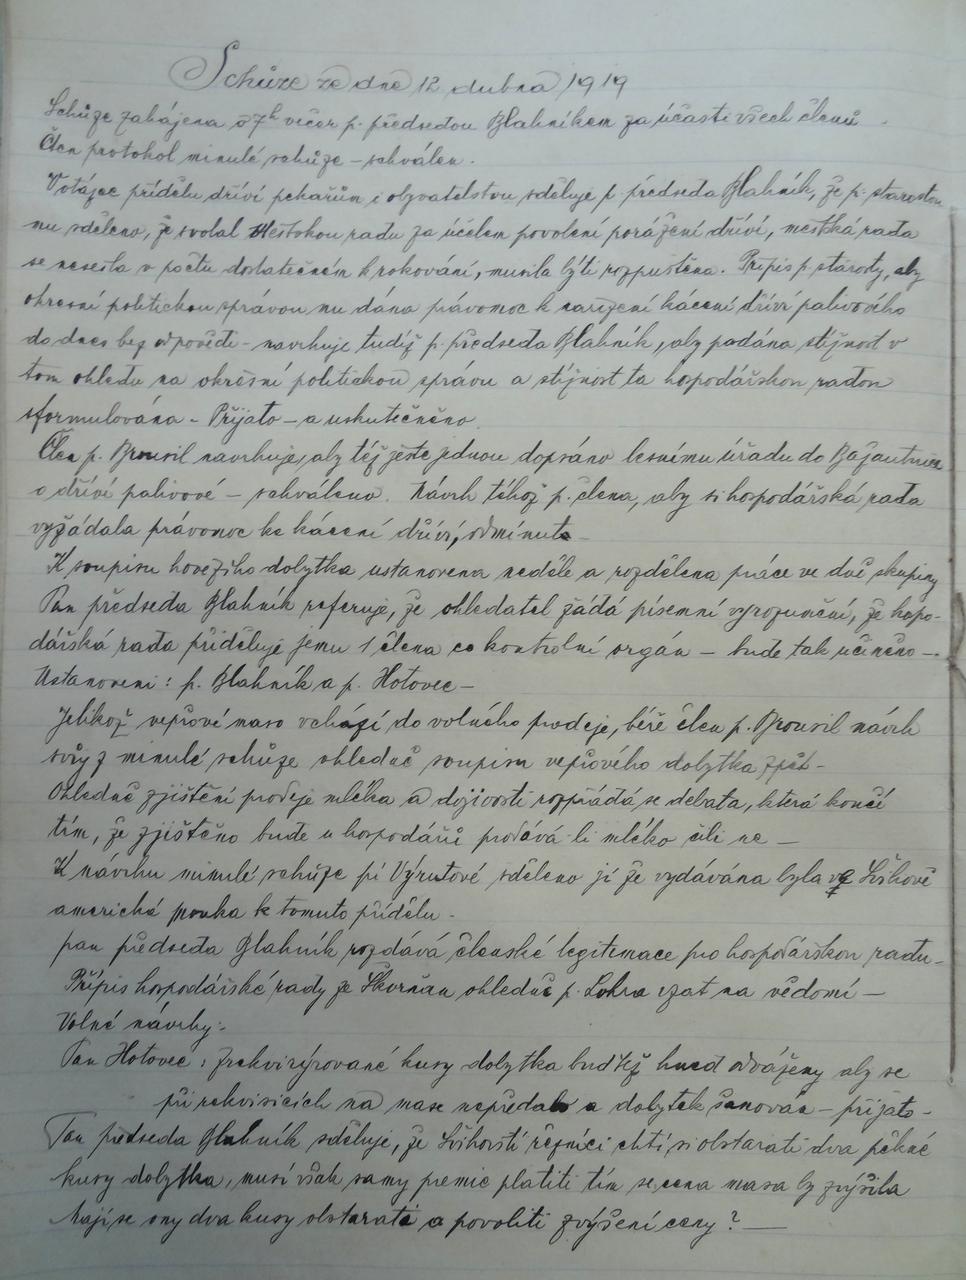 Schůze ze dne 12 dubna 1919
Schůze zahájena o 7h večer p. předsedou Blahníkem za účasti všech členů.
Čten protokol minulé schůze – schválen.
V otázce přídělu dříví pekařům i obyvatelstvu sděluje p. předseda Blahník, že p. starostou
mu sděleno, že svolal Městskou radu za účelem povolení porážení dříví, městská rada
se nesešla v počtu dostatečném k rokování, musila býti rozpuštěna. Přípis p. starosty, aby
okresní politickou správou mu dána právomoc k nařízení kácení dříví palivového
do dnes bez odpovědi – navrhuje tudíž p. předseda Blahník, aby podána stížnost v
tom ohledu na okresní politickou správu a stížnost ta hospodářskou radou
sformulována – Přijato – a uskutečněno.
Člen p. Brousil navrhuje, aby též ještě jednou dopsáno lesnímu úřadu do Bažantnice
o dříví palivové – schváleno. Návrh téhož p. člena, aby si hospodářská rada
vyžádala právomoc ke kácení dříví, odmínuto –
K soupisu hovězího dobytka ustanovena neděle a rozdělena práce ve dvě skupiny
Pan předseda Blahník referuje, že ohledatel žádá písemní vyrozumění, že hospo-
dářská rada přiděluje jemu 1 člena co kontrolní orgán – bude tak učiněno –.
Ustanoveni: p. Blahník a p. Hotovec –
Jelikož vepřové maso vchází do volného prodeje, béře člen p. Brousil návrh
svůj z minulé schůze ohledně soupisu vepřového dobytka zpět –
Ohledně zjištění prodeje mléka a dojivosti rozpřádá se debata, která končí
tím, že zjištěno bude u hospodářů prodává-li mléko čili ne –
K návrhu minulé schůze pí Výrutové sděleno jí že vydávána byla ve Lšihově
americká mouka k tomuto přídělu –
pan předseda Blahník rozdává členské legitimace pro hospodářskou radu –
Přípis hospodářské rady ze Škvrňan ohledně p. Lohra vzat na vědomí –
Volné návrhy:
Pan Hotovec: zrekvirýrované kusy dobytka buďtéž hned odváženy aby se
při rekvisicích na mase neprodalo a dobytek šanován – přijato –
Pan předseda Blahník sděluje, že Lšihovští řezníci chtí si obstarati dva pěkné
kusy dobytka, musí však samy premie platiti tím se cena masa by zvýšila
Mají se ony dva kusy obstarati a povoliti zvýšení ceny? –